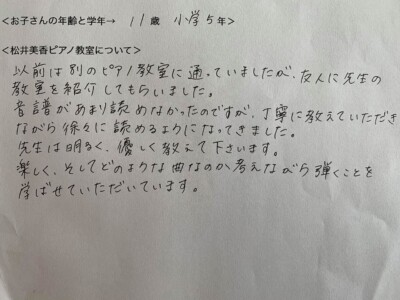 <お子さんの年齢と学年→ 11歳 小学5年>
<松井美香ピアノ教室について>
以前は別のピアノ教室に通っていましたが、友人に先生の
教室を紹介してもらいました。
音譜があまり読めなかったのですが、丁寧に教えていただき
ながら徐々に読めるようになってきました。
先生は明るく、優しく教えて下さいます。
楽しく、そしてどのような曲なのか考えながら弾くことを
学ばせていただいています。